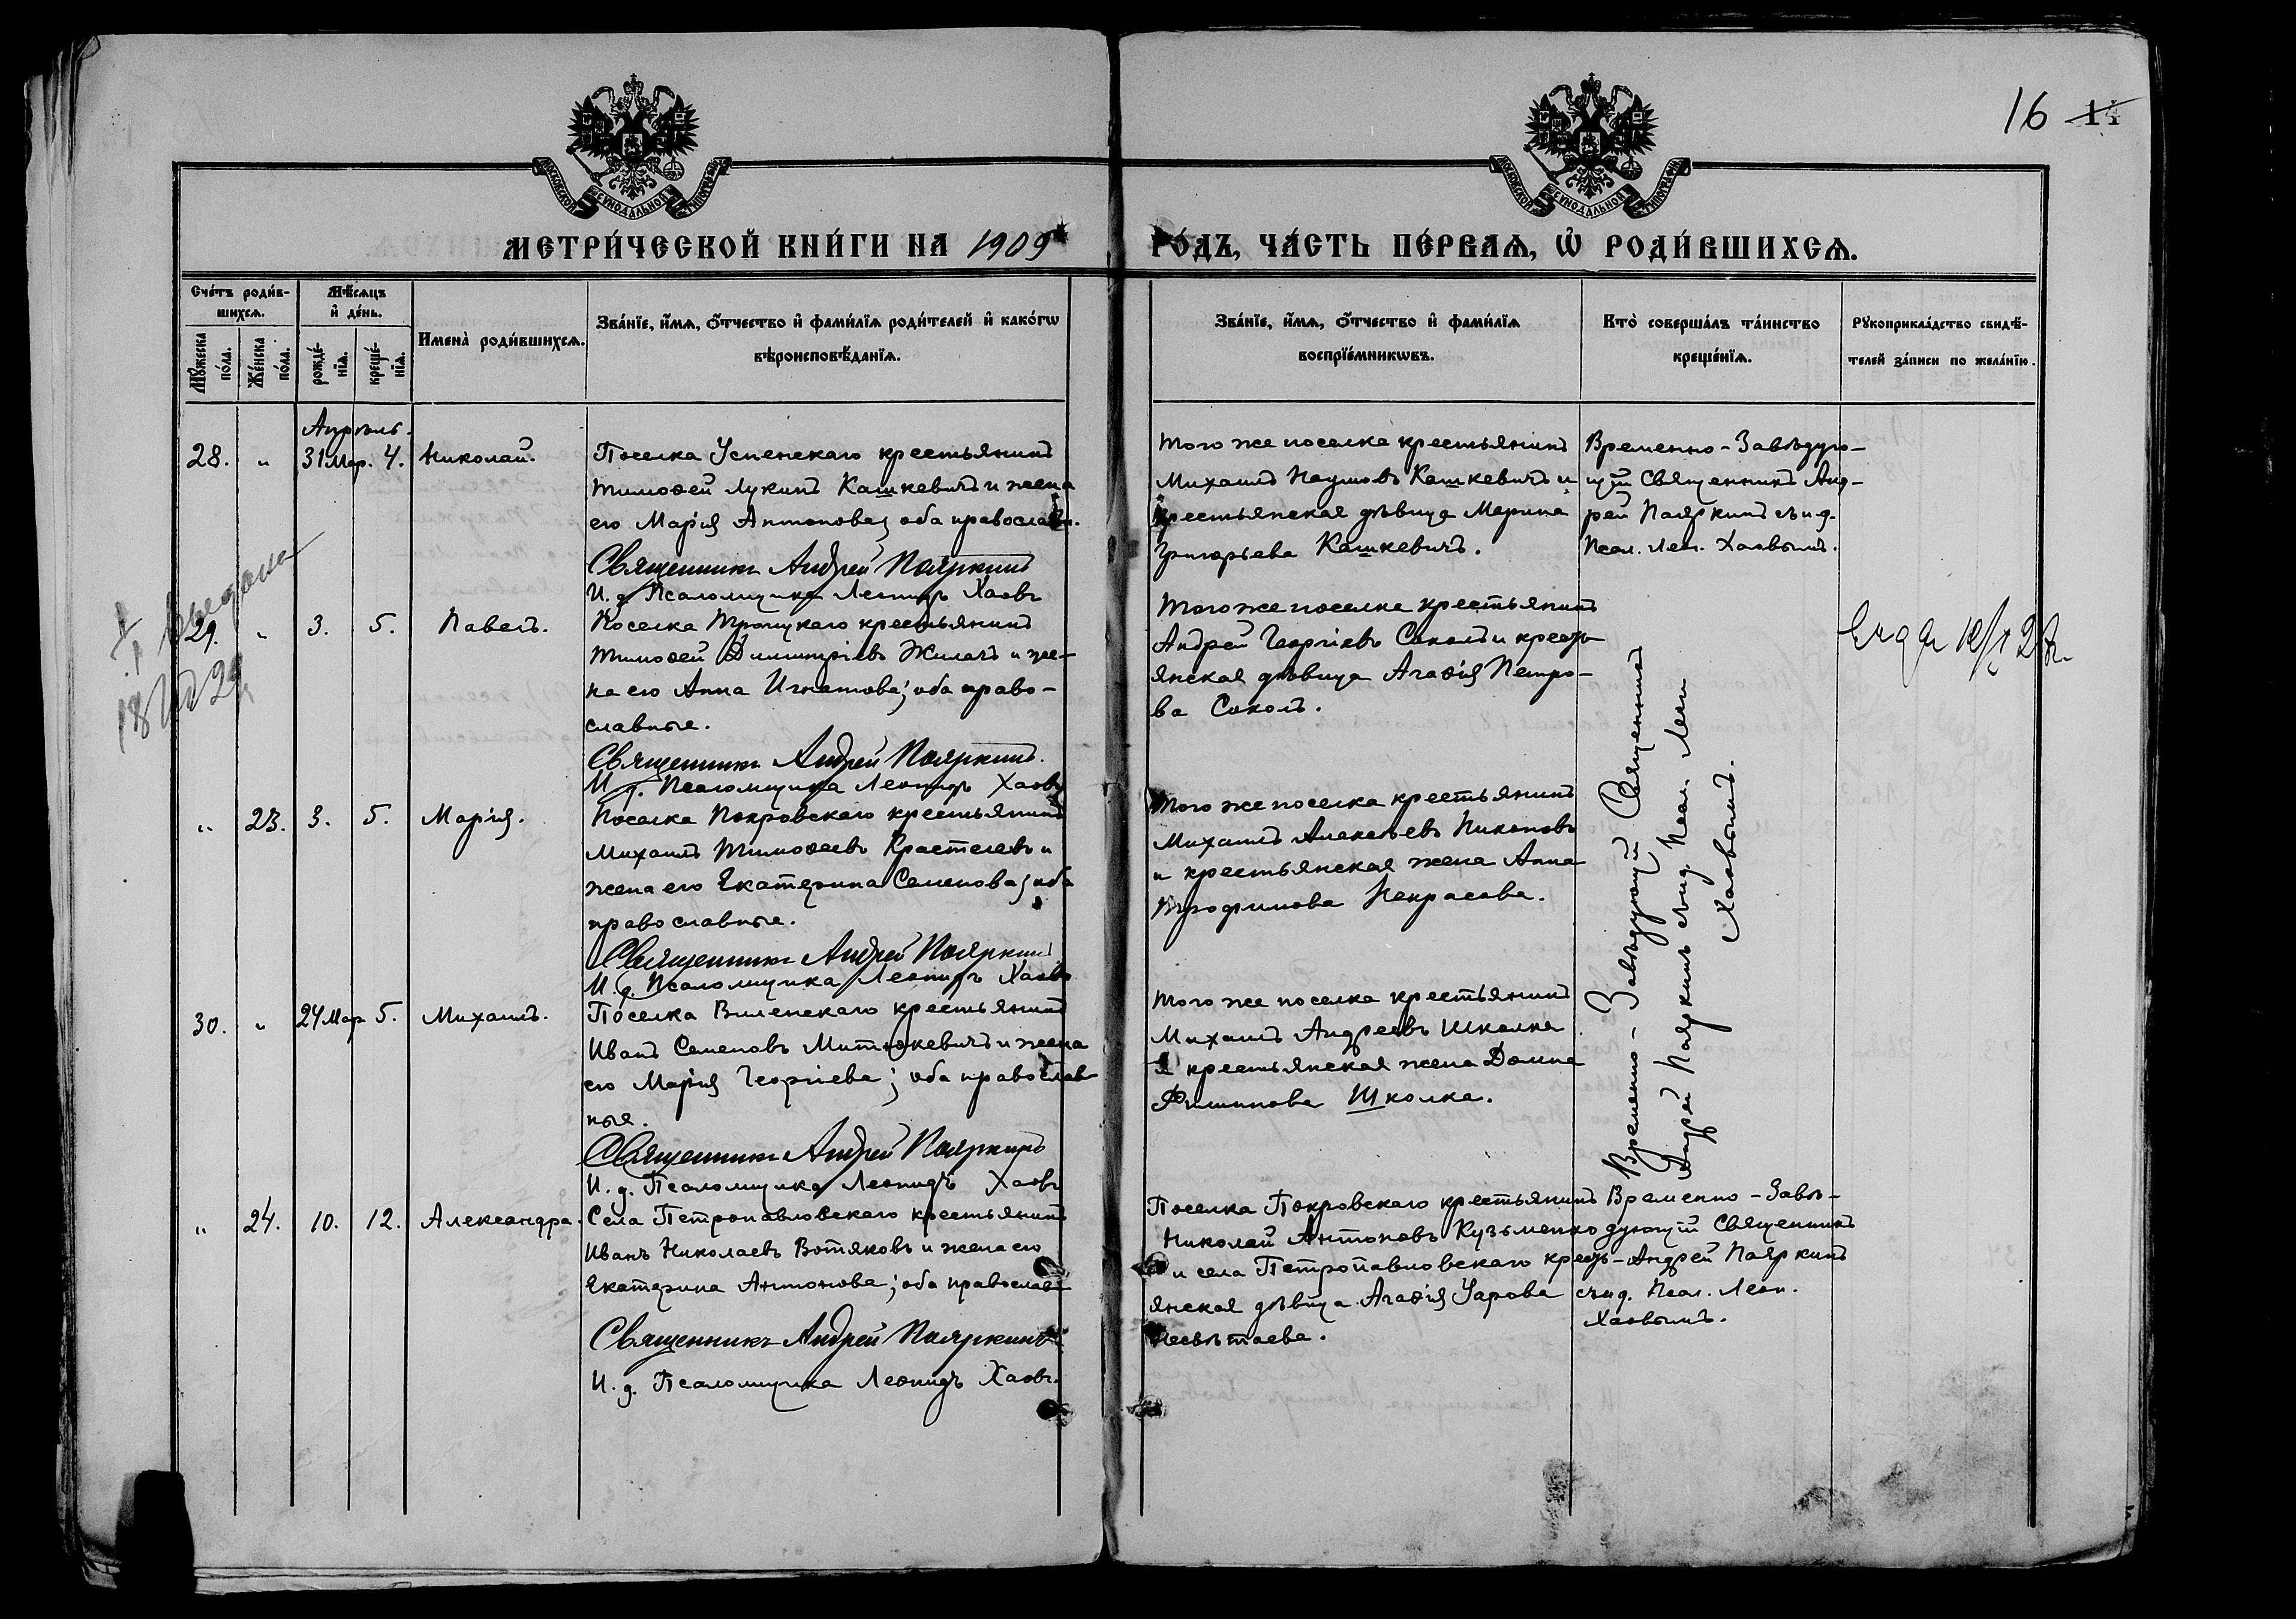 16 14
МОСКОВСКОЙ СѴНОДАЛЬНОЙ ТИПОГРАФІИ
МОСКОВСКОЙ СѴНОДАЛЬНОЙ ТИПОГРАФІИ
МЕТРИ́ЧЕСКОЙ КНИ́ГИ НА 1909 ГО́ДЪ, ЧА́СТЬ ПЕ́РВАѦ, Ѡ҆ РОДИ́ВШИХСѦ.
Сче́тъ роди́в-
шихсѧ.
Мꙋ́жеска по́ла.
Же́нска по́ла.
Мѣ́сѧцъ
и҆ де́нь.
рожде́-
нїѧ.
креще́-
нїѧ.
Имена̀ роди́вшихсѧ.
Зва́нїе, и҆́мѧ, ѻ҆́тчество и҆ фами́лїѧ роди́телей и҆ како́гѡ
вѣроисповѣ́данїѧ.
Зва́нїе, и҆́мѧ, ѻ҆́тчество и҆ фами́лїѧ
воспрїе́мникѡвъ.
Кто̀ соверша́лъ та́инство
креще́нїѧ.
Рꙋкоприкла́дство свидѣ́-
телей за́писи по жела́нїю.
Апрѣль.
28. " 31 Мар. 4. Николай.
Поселка Успенскаго крестьянинъ
Тимоѳей Лукинъ Кашкевичъ и жена
его Марія Антонова; оба православн.
Священникъ Андрей Пояркинъ
И. д. Псаломщика Леонидъ Хаовъ
Того же поселка крестьянинъ
Михаилъ Наумовъ Кашкевичъ и
крестьянская дѣвица Марина
Григорьева Кашкевичъ.
Временно-Завѣдую-
щій Священникъ Анд-
рей Пояркинъ съ и.д.
Псал. Леон. Хаовымъ.
выдана
29. " 3. 5. Павелъ.
Поселка Троицкаго крестьянинъ
Тимоѳей Димитріевъ Жилачъ и же-
на его Анна Игнатова; оба право-
славные.
Священникъ Андрей Пояркинъ.
И. д. Псаломщика Леонидъ Хаовъ
Того же поселка крестьянинъ
Андрей Георгіевъ Соколъ и кресть-
янская дѣвица Агаѳія Петро-
ва Соколъ.
" 23. 3. 5. Марія.
Поселка Покровскаго крестьянинъ
Михаилъ Тимоѳеевъ Крастелевъ и
жена его Екатерина Семенова; оба
православные.
Священникъ Андрей Пояркинъ
И. д. Псаломщика Леонидъ Хаовъ
Того же поселка крестьянинъ
Михаилъ Алексѣевъ Никоновъ
и крестьянская жена Анна
Трофимова Некрасова.
Временно-Завѣдующій Священникъ
Андрей Пояркинъ съ и.д. Псал. Леон.
Хаовымъ.
30. " 24 Мар 5. Михаилъ.
Поселка Виленскаго крестьянинъ
Иванъ Семеновъ Митюкевичъ и жена
его Марія Георгіева; оба православ
ные.
Священникъ Андрей Пояркинъ
И. д. Псаломщика Леонидъ Хаовъ
Того же поселка крестьянинъ
Михаилъ Андреевъ Школка
и крестьянская жена Домна
Филиппова Школка.
" 24. 10. 12. Александра.
Села Петропавловскаго крестьянинъ
Иванъ Николаевъ Вотяковъ и жена его
Екатерина Антонова; оба православ
Священникъ Андрей Пояркинъ
И. д. Псаломщика Леонидъ Хаовъ.
Поселка Покровскаго крестьянинъ
Николай Антоновъ Кузьменко
и села Петропавловскаго кресть-
янская дѣвица Агаѳія Уарова
Несвѣтаева.
Временно-Завѣ-
дующій Священникъ
Андрей Пояркинъ
съ и.д. Псал. Леон.
Хаовымъ.